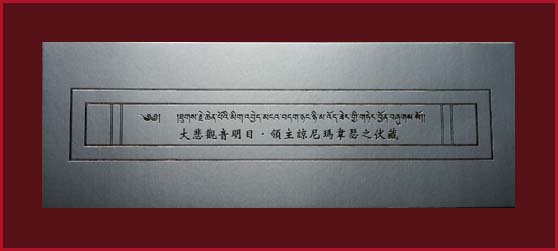 ༄༅། །ཐུགས་རྗེ་ཆེན་པོའི་མིག་འབྱེད་མངའ་བདག་ཉང་ཉི་མ་འོད་ཟེར་གྱི་གཏེར་བྱོན་བཞུགས་སོ།།
大悲觀音明目‧領主諒尼瑪韋瑟之伏藏